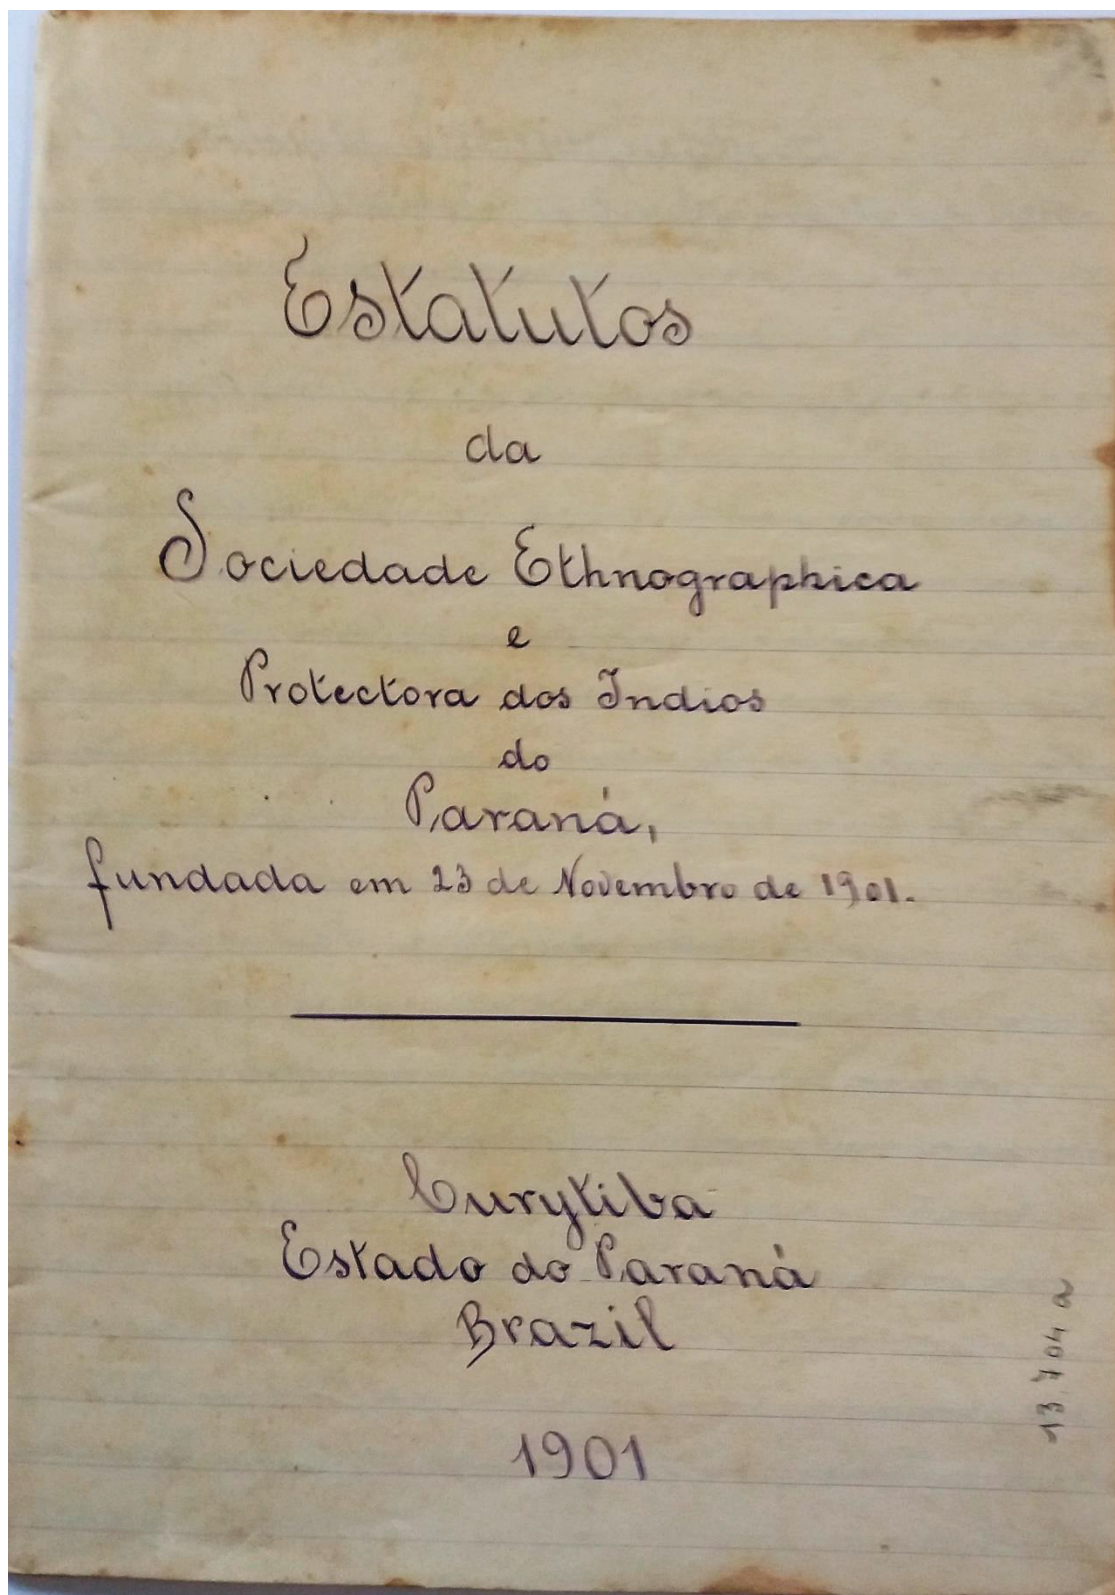 Estatutos
da
Sociedade Ethnographica
e
Protectora dos Indios
do
Paraná,
fundada em 23 de Novembro de 1901.
Curytiba
Estado do Paraná
Brazil
1901
13.704 a